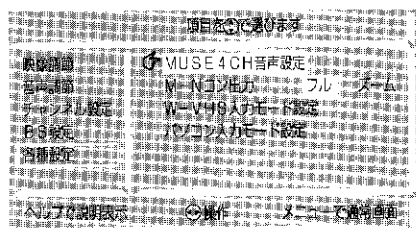 項目を◆で選びます
映像調節
音声調節
チャンネル設定
BS設定
各種設定
MUSE4CH音声設定
M-Nコン出力 フル ズーム
W-VHS入力モード設定
パソコン入力モード設定
ヘルプで説明表示 操作 メニューで通常画面